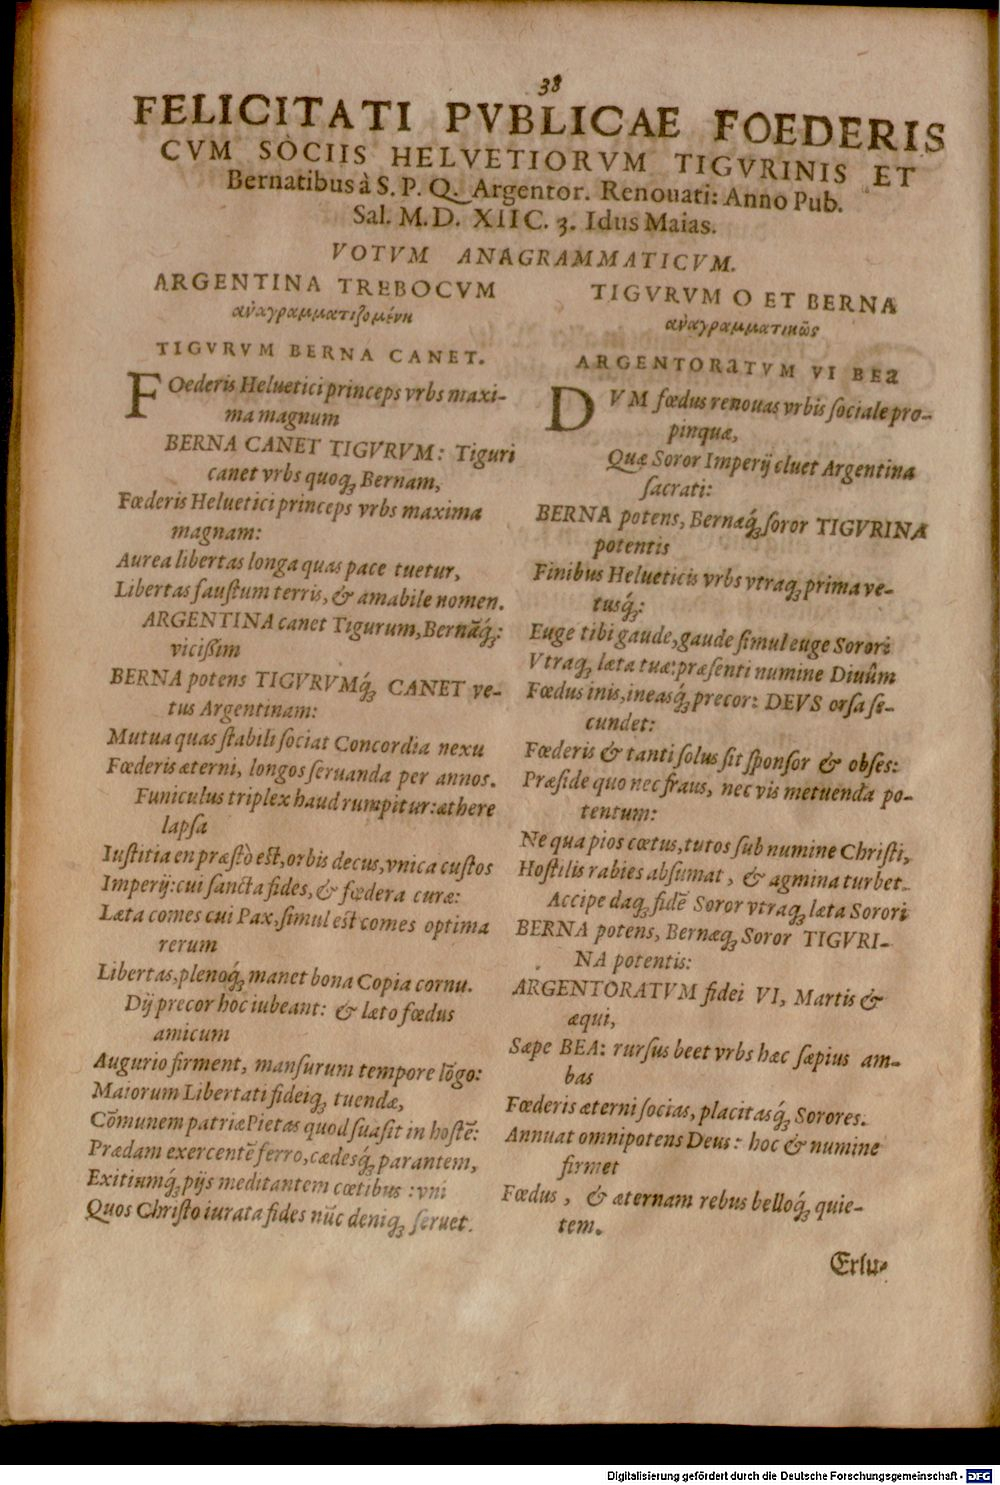 38
FELICITATI PVBLICAE FOEDERIS
CVM SOCIIS HELVETIORVM TIGVRINIS ET
Bernatibus à S. P. Q. Argentor. Renouati: Anno Pub.
Sal. M.D. XIIC. 3. Idus Maias.
VOTVM ANAGRAMMATICVM.
ARGENTINA TREBOCVM
ἀναγραμματιζομένη
TIGVRVM BERNA CANET.
FOederis Heluetici princeps vrbs maxi-
ma magnum
BERNA CANET TIGVRVM: Tiguri
canet vrbs quoq́; Bernam,
Fœderis Heluetici princeps vrbs maxima
magnam:
Aurea libertas longa quas pace tuetur,
Libertas faustum terris, & amabile nomen.
ARGENTINA canet Tigurum, Bernāq́;:
vicissim
BERNA potens TIGVRVMq́; CANET ve-
tus Argentinam:
Mutua quas stabili sociat Concordia nexu
Fœderis æterni, longos seruanda per annos.
Funiculus triplex haud rumpitur: æthere
lapsa
Iustitia en præstò est, orbis decus, vnica custos
Imperij: cui sancta fides, & fœdera curæ:
Læta comes cui Pax, simul est comes optima
rerum
Libertas, plenoq́; manet bona Copia cornu.
Dij precor hoc iubeant: & læto fœdus
amicum
Augurio firment, mansurum tempore lōgo:
Maiorum Libertati fideiq; tuendæ,
Cōmunem patriæ Pietas quod suasit in hostē:
Prædam exercentē ferro, cædesq́; parantem,
Exitiumq́; pijs meditantem cœtibus: vni
Quos Christo iurata fides nūc deniq; seruet.
TIGVRVM O ET BERNA
ἀναγραμματικῶς
ARGENTORaTVM VI BEa
DVM fœdus renouas vrbis sociale pro-
pinquæ,
Quæ Soror Imperij cluet Argentina
sacrati:
BERNA potens, Bernæq́; soror TIGVRINA
potentis
Finibus Helueticis vrbs vtraq; prima ve-
tusq́;:
Euge tibi gaude, gaude simul euge Sorori
Vtraq; læta tuæ: præsenti numine Diuûm
Fœdus inis, ineasq́; precor: DEVS orsa se-
cundet:
Fœderis & tanti solus sit sponsor & obses:
Præside quo nec fraus, nec vis metuenda po-
tentum:
Ne qua pios cœtus, tutos sub numine Christi,
Hostilis rabies absumat, & agmina turbet.
Accipe daq; fidē Soror vtraq; læta Sorori
BERNA potens, Bernæq; Soror TIGVRI-
NA potentis:
ARGENTORATVM fidei VI, Martis &
æqui,
Sæpe BEA: rursus beet vrbs hæc sæpius am-
bas
Fœderis æterni socias, placitasq́; Sorores.
Annuat omnipotens Deus: hoc & numine
firmet
Fœdus, & æternam rebus belloq́; quie-
tem.
Ersu-
Digitalisierung gefördert durch die Deutsche Forschungsgemeinschaft - DFG